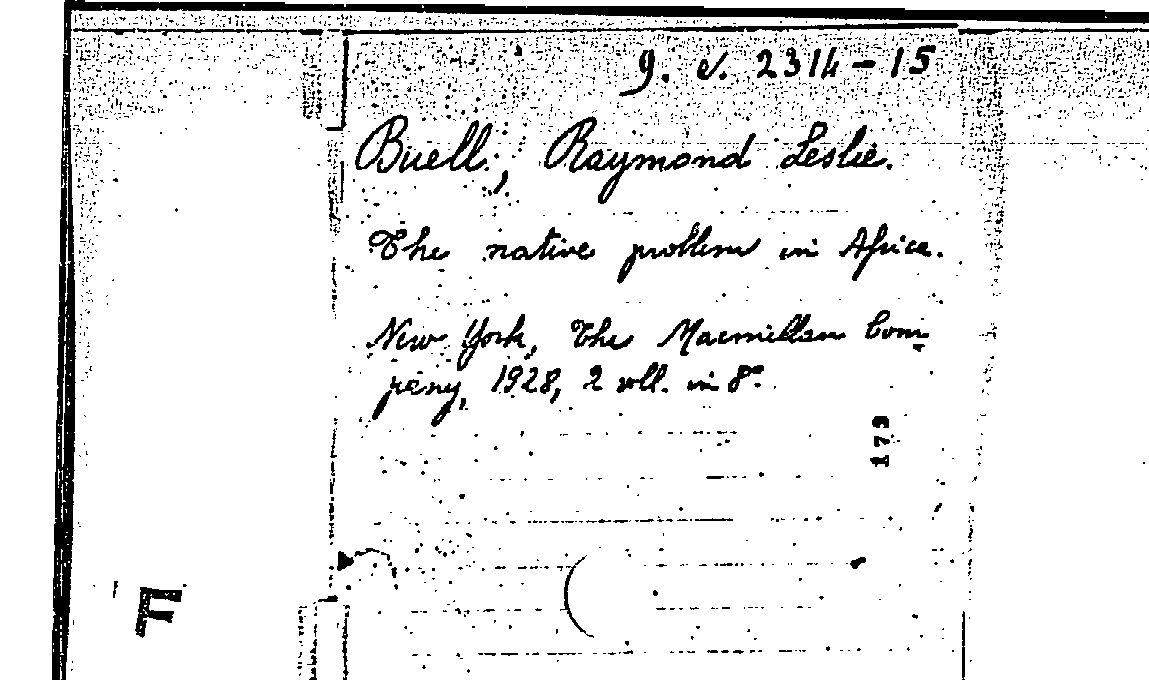 g. d. 2314-15
Buell, Raymond Leslie.
The native problem in Africa.
New York, The Macmillan Com-
pany, 1928, 2 voll. in 8º.
173
F